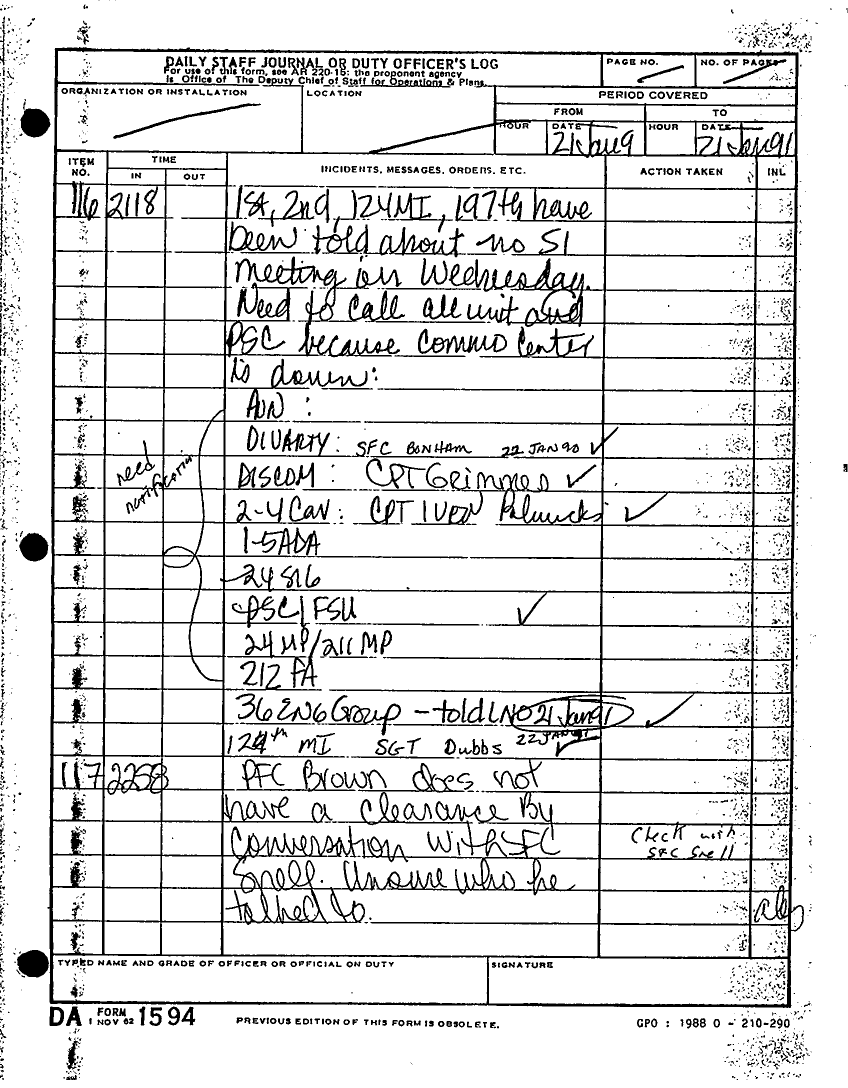 DAILY STAFF JOURNAL OR DUTY OFFICER'S LOG
For use of this form, see AR 220-15; the proponent agency
is Office of The Deputy Chief of Staff for Operations & Plans.
PAGE NO.
NO. OF PAGES
ORGANIZATION OR INSTALLATION
LOCATION
PERIOD COVERED
FROM
TO
HOUR
DATE
HOUR
DATE
21 Jan 9
21 Jan 91
ITEM NO.
TIME
IN
OUT
INCIDENTS, MESSAGES, ORDERS, ETC.
ACTION TAKEN
INL
116 2118 1st, 2nd, 124MI, 197th have
been told about no S1
meeting on Wednesday.
Need to call all unit and
PSC because Commo Center
is down:
AVN :
DIVARTY: SFC BONHAM 22 JAN 90 ✓
need
notification
DISCOM: CPT Grimmes ✓
2-4 Cav: CPT ✓
1-5 ADA
24 SIG
PSC/FSU ✓
24 MP/211 MP
212 FA
36 ENG Group - told LNO 21 Jan 91 ✓
124th MI SGT Dubbs 22 JAN 91 ✓
117 2258 PFC Brown does not
have a clearance By
Conversation With SFC
Snell. Unsure who he
talked to.
Check with
SFC Snell
TYPED NAME AND GRADE OF OFFICER OR OFFICIAL ON DUTY
SIGNATURE
DA FORM 1594
1 NOV 62
PREVIOUS EDITION OF THIS FORM IS OBSOLETE.
GPO : 1988 O - 210-290